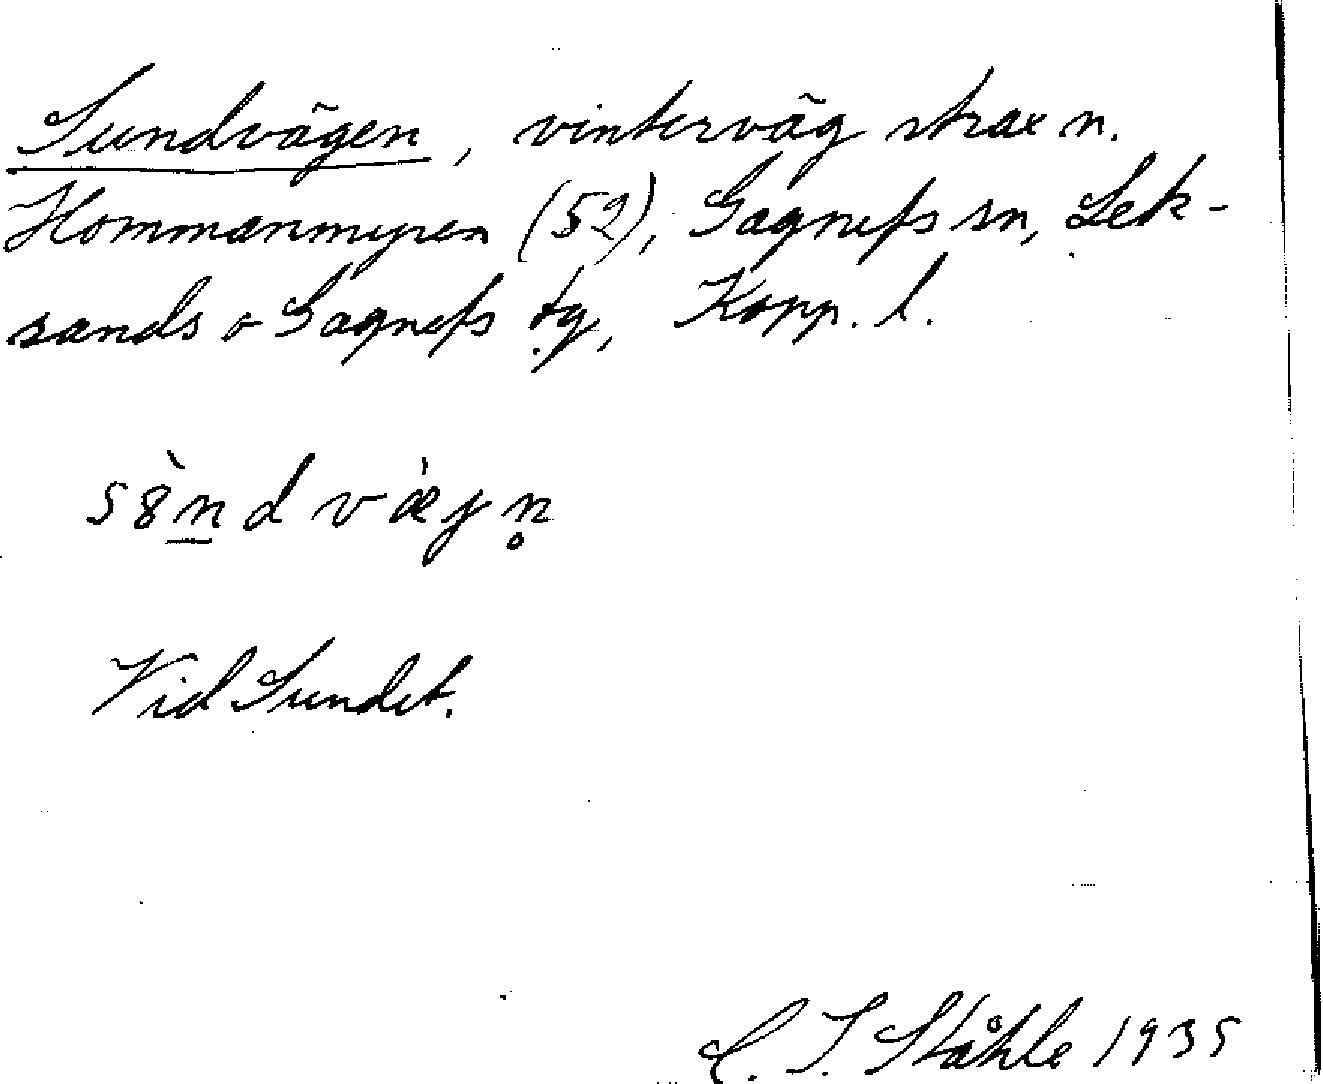 Sundvägen, vinterväg strax n.
Hommanmyren (52), Gagnefs sn, Lek-
sands o Gagnefs tg, Kopp. l.
sȣ̀n̲dvæ̀gn̥
Vid Sundet.
C. I. Ståhle 1935